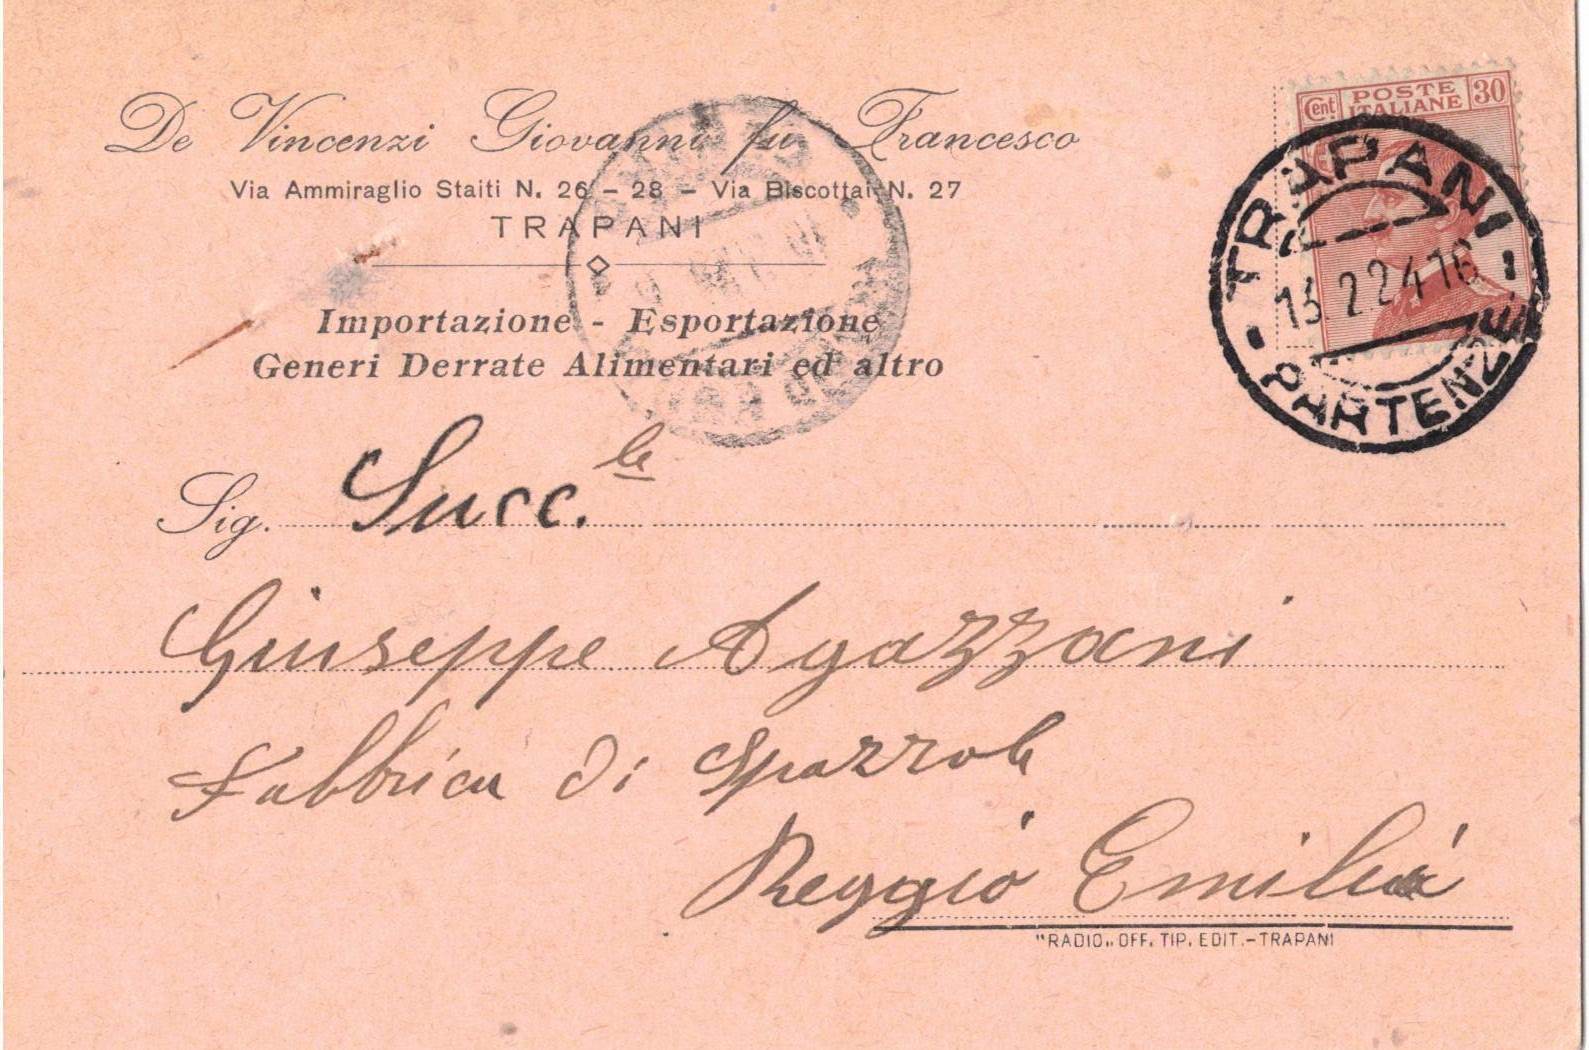 De Vincenzi Giovanni fu Francesco
Via Ammiraglio Staiti N. 26 - 28 - Via Biscottai N. 27
TRAPANI
Importazione - Esportazione
Generi Derrate Alimentari ed altro
Cent POSTE ITALIANE 30
TRAPANI
13.2.24 16
PARTENZE
Sig. Succ.le
Giuseppe Agazzani
Fabbrica di Spazzole
Reggio Emilia
"RADIO„ OFF. TIP. EDIT.-TRAPANI